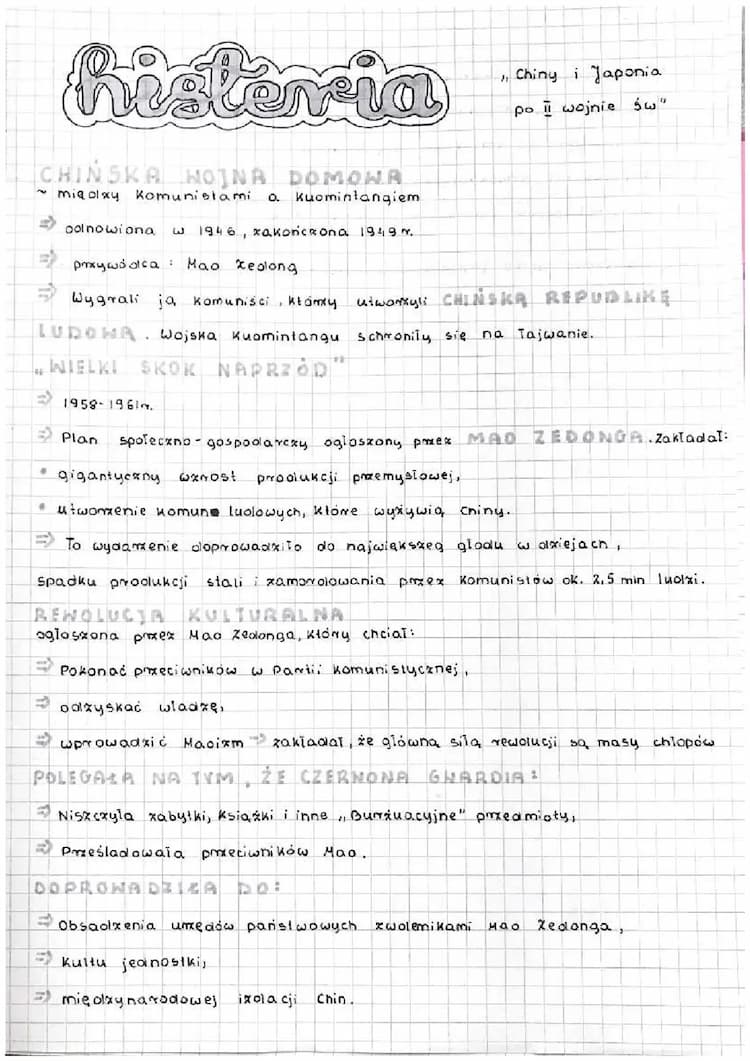 historia
„Chiny i Japonia
po II wojnie św"
CHIŃSKA WOJNA DOMOWA
~ między Komunistami a Kuomintangiem
⇒ odnowiona w 1946, zakończona 1949r.
⇒ przywódca: Mao Zedong
⇒ Wygrali ją komuniści, którzy utworzyli CHIŃSKĄ REPUBLIKĘ
LUDOWĄ. Wojska Kuomintangu schroniły się na Tajwanie.
„WIELKI SKOK NAPRZÓD"
⇒ 1958-1961r.
⇒ Plan społeczno-gospodarczy ogłoszony przez MAO ZEDONGA. Zakładał:
• gigantyczny wzrost produkcji przemysłowej,
• utworzenie komun ludowych, które wyżywią Chiny.
⇒ To wydarzenie doprowadziło do największeg głodu w dziejach,
spadku produkcji stali i zamordowania przez Komunistów ok. 2,5 mln ludzi.
REWOLUCJA KULTURALNA
ogłoszona przez Mao Zedonga, który chciał:
⇒ Pokonać przeciwników w Partii Komunistycznej,
⇒ odzyskać władzę,
⇒ wprowadzić Maoizm ⇒ zakładał, że główną siłą rewolucji są masy chłopów
POLEGAŁA NA TYM, ŻE CZERWONA GWARDIA:
⇒ Niszczyła zabytki, Książki i inne „Burżuacyjne" przedmioty,
⇒ Prześladowała przeciwników Mao.
DOPROWADZIŁA DO:
⇒ Obsadzenia urzędów państwowych zwolenikami Mao Zedonga,
⇒ Kultu jednostki,
⇒ międzynarodowej izolacji Chin.